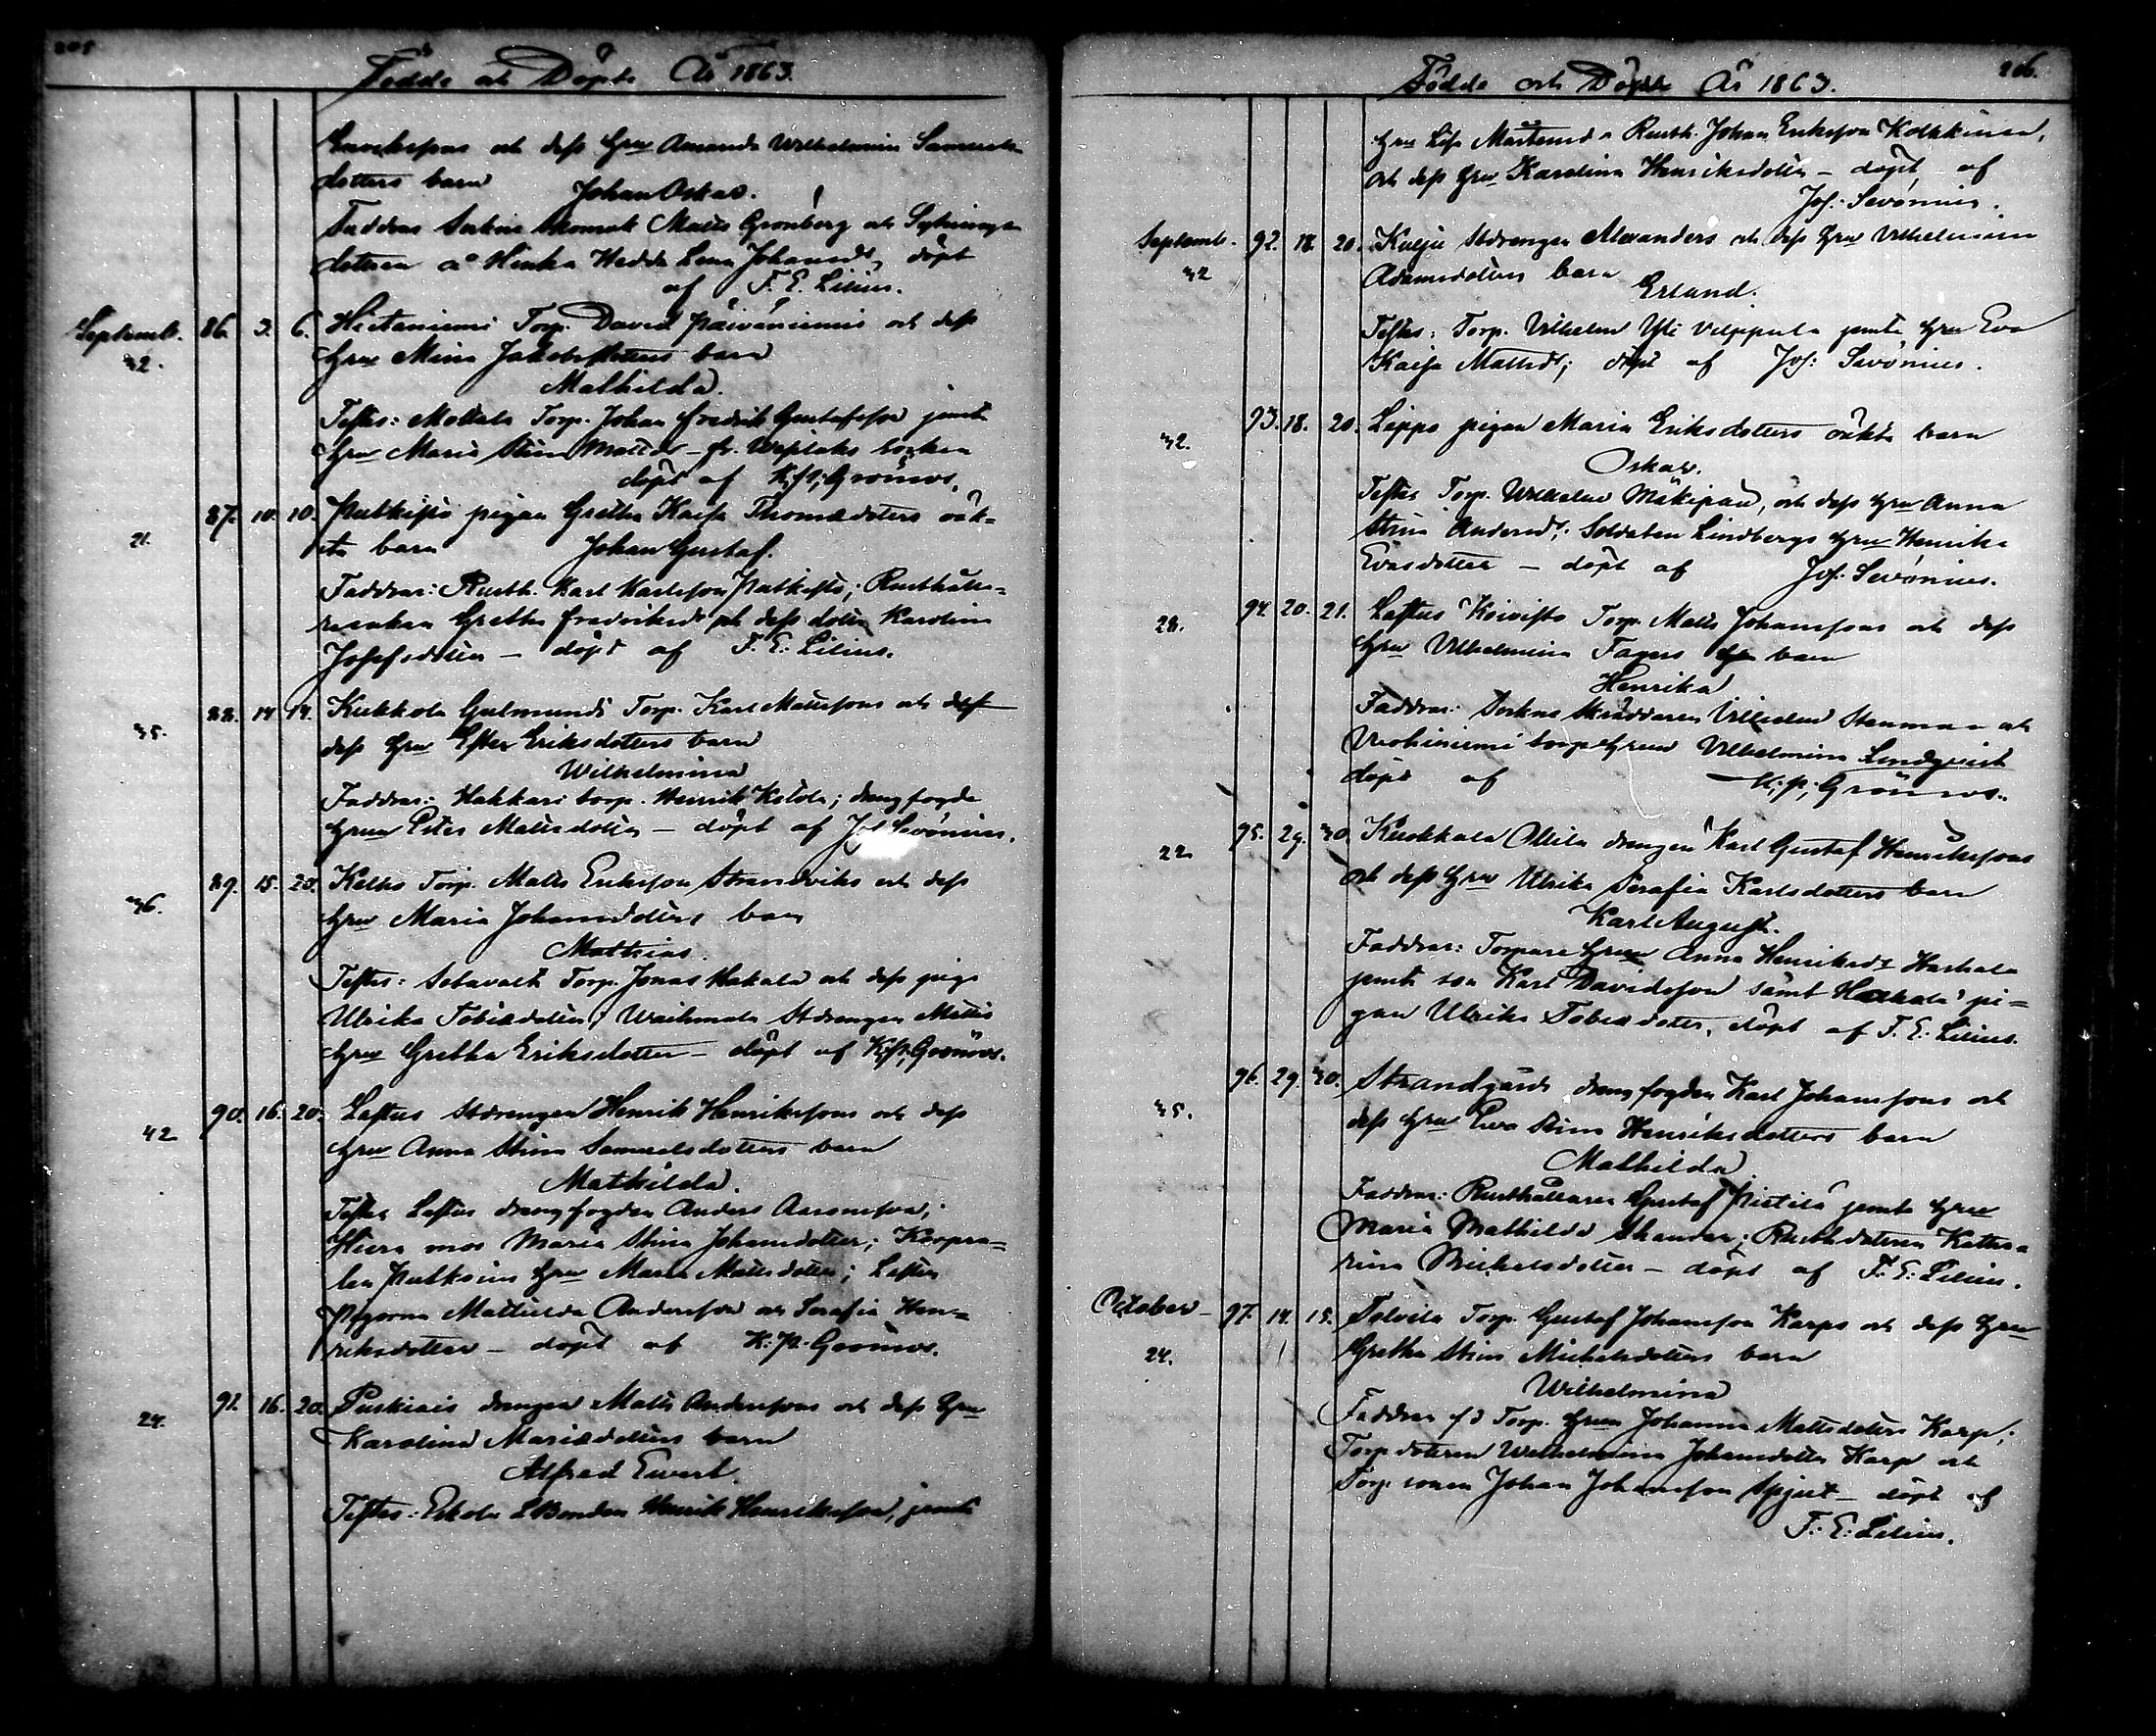 205
Födde och Döpte År 1863.
och dess hru Amanda Wilhelmina Samuels-
dotters barn Johan Oskar.
Faddrar Sockne Skomak Matts Grönberg och
dottren å Hinka Hedda Lena Johansdr döpt
af F. E. Lilius.
Septemb. 86. 3. 6. Hietaniemi Torp. David Päiväniemis och dess
32. hru Mina Jakobsdotters barn
Mathilda.
Testes: Mattala Torp. Johan Fredrik Gustafsson jemte
hru Maria Stina Mattsdr fr. Wesilaks socken
döpt af K. P. Grönroos.
87. 10. 10. pigan Gretha Kaisa Thomædotters oäk-
21. ta barn Johan Gustaf.
Faddrar: Rusth. Karl Karlsson; Rusthålla-
reenkan Gretha Fredriksdr och dess dotter Karolina
Josefsdotter – döpt af F. E. Lilius.
88. 14 14. Kukkola Gulmunds Torp. Karl Mattssons och dess
35. dess hru Ester Eriksdotters barn
Wilhelmina
Faddrar: Hakkari torp. Henrik; drengfogde
hrun Mattsdotter – döpt af Jos. Sevonius.
89. 15. 20. Torp. Matts Eriksson Strandviks och dess
36. hru Maria Johansdotters barn
Mathias.
Testes: Sotavalt Torp. Jonas Hakala och dess piga
Ulrika Tobiædotter; Stdrengen Matts
hru Gretha Eriksdotter – döpt af K. P. Grönroos.
90. 16. 20. Lastus Stdrengen Henrik Henrikssons och dess
42 hru Anna Stina Samuelsdotters barn
Mathilda.
Testes Lastus drengfogden Anders Aaronsson;
mor Maria Stina Johansdotter; Korpra-
len hru Maria Mattsdotter; Lastus
Pigorna Mathilda Andersson och Serafia Hen-
riksdotter – döpt af K. P. Grönroos.
91. 16. 20. drengen Matts Anderssons och dess hru
24. Karolina Mariædotters barn
Alfred Evert.
Testes: Eskola Bonden Henrik Henriksson, jemte
206.
Födde och Döpte År 1863.
hru Lisa Mårtensdr Rusth. Johan Eriksson
och dess hru Karolina Henriksdotter – döpt af
Jos: Sevonius.
Septemb. 92. 18. 20. Stdrengen Alexanders och dess hru Vilhelmina
32 Adamsdotters barn
Erland.
Testes: Torp. Vilhelm Yli Velppula jemte hru Eva
Kaisa Mattsdr; döpt af Jos: Sevonius.
93. 18. 20. Leppo pigan Maria Eriksdotters oäkta barn
32. Oskar.
Testes Torp. Wilhelm Mäkipää, och dess hru Anna
Stina Andersdr; Soldaten Lindbergs hru Henrika
Evasdotter – döpt af Jos: Sevonius.
94. 20. 21. Lastus Koivisto Torp. Matts Johanssons och dess
28. hru Vilhelmina Fagers barn
Henrika
Faddrar: Sockne Skräddaren Vilhelm Stenman och
torp hrun Vilhelmina Lindqvist
döpt af K. P. Grönroos.
95. 29. 30. Kurkkala Ollila drengen Karl Gustaf Henrikssons
22 och dess hru Ulrika Serafia Karlsdotters barn
Karl August.
Faddrar: Torpare hrun Anna Henriksdr Harhala
jemte son Karl Davidsson samt Harhala pi-
gan Ulrika Tobiædotter, döpt af F. E. Lilius.
96. 29. 30. Strandgårds drengfogden Karl Johanssons och
35. dess hru Eva Stina Henriksdotters barn
Mathilda
Faddrar: Rusthållaren Gustaf Pietilä jemte hru
Maria Mathilda; Rusthdottren Katha-
rina Michelsdotter – döpt af F. E. Lilius.
October 97. 14. 15. Tolvila Torp. Gustaf Johansson Karps och dess hru
24. Gretha Stina Michelsdotters barn
Wilhelmina
Faddrar fd Torp. hrun Johanna Mattsdotter Karp;
Torp dottren Wilhelmina Johansdotter Karp och
Torp. sonen Johan Johansson Spjut – döpt af
F. E. Lilius.